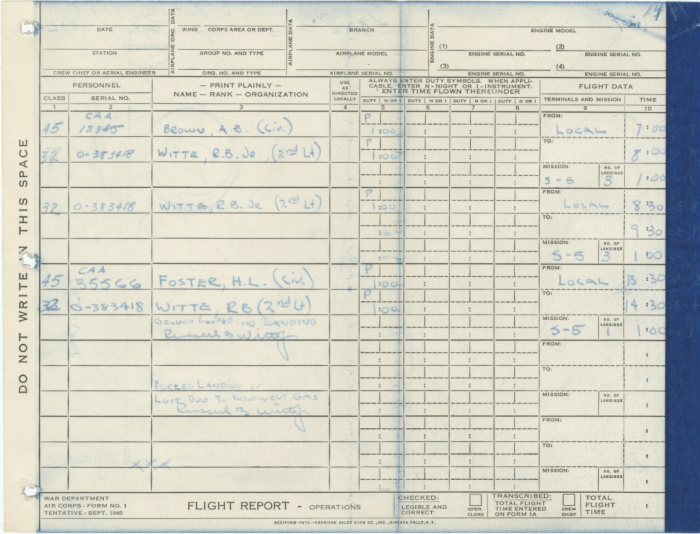 14
DATE WING CORPS AREA OR DEPT. BRANCH ENGINE MODEL
AIRPLANE ORG. DATA
AIRPLANE DATA
ENGINE DATA
(1) (2)
STATION GROUP NO. AND TYPE AIRPLANE MODEL ENGINE SERIAL NO. ENGINE SERIAL NO.
(3) (4)
CREW CHIEF OR AERIAL ENGINEER ORG. NO. AND TYPE AIRPLANE SERIAL NO. ENGINE SERIAL NO. ENGINE SERIAL NO.
PERSONNEL — PRINT PLAINLY — USE AS DIRECTED LOCALLY ALWAYS ENTER DUTY SYMBOLS. WHEN APPLI-
CABLE, ENTER N - NIGHT OR I - INSTRUMENT.
ENTER TIME FLOWN THEREUNDER
FLIGHT DATA
CLASS SERIAL NO. NAME — RANK — ORGANIZATION DUTY N OR I DUTY N OR I DUTY N OR I DUTY N OR I TERMINALS AND MISSION TIME
1 2 3 4 5 6 7 8 9 10
CAA P FROM:
45 12345 BROWN, A.B. (CIV.) 1:00 LOCAL 7:00
P TO:
32 0-383418 WITTE, R.B. JR. (2nd Lt) 1:00 8:00
MISSION: NO. OF LANDINGS
S-5 3 1:00
P FROM:
32 0-383418 WITTE, R.B. JR (2nd Lt) 1:00 LOCAL 8:30
TO:
9:30
MISSION: NO. OF LANDINGS
S-5 3 1:00
CAA P FROM:
45 35566 FOSTER, H.L. (CIV.) 1:00 LOCAL 13:30
P TO:
32 0-383418 WITTE, RB (2nd Lt) 1:00 14:30
GROUND LOOPED IN LANDING
MISSION: NO. OF LANDINGS
S-5 1 1:00
FROM:
TO:
FORCED LANDING
LOST DUE TO GAS
MISSION: NO. OF LANDINGS
FROM:
TO:
XXX
MISSION: NO. OF LANDINGS
DO NOT WRITE IN THIS SPACE
WAR DEPARTMENT
AIR CORPS - FORM NO. 1
TENTATIVE - SEPT. 1940
FLIGHT REPORT - OPERATIONS
CHECKED:
LEGIBLE AND
CORRECT
OPER. CLERK
TRANSCRIBED:
TOTAL FLIGHT
TIME ENTERED
ON FORM 1A
CREW CHIEF
TOTAL
FLIGHT
TIME